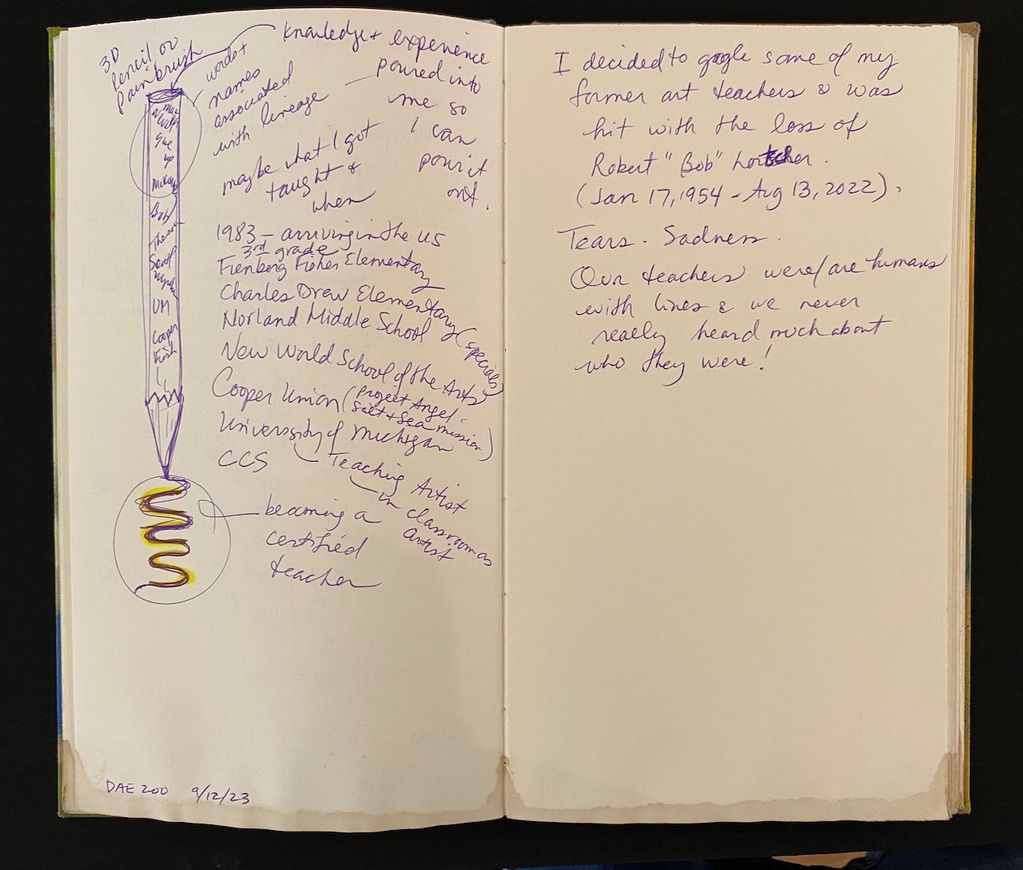 3D
pencil or
Painbrush
words +
names
associated
with lineage
knowledge + experience
poured into
me so
I can
pour it
out.
maybe what I got
taught &
when
Sue
Mickey
Bob
UM
Cooper
1983 – arriving in the US
3rd grade
Fienberg Fisher Elementary
Charles Drew Elementary (specials)
Norland Middle School
New World School of the Arts
Cooper Union (Project Angel -
Salt + Sea mission)
University of Michigan
CCS
Teaching Artist
in classroom as
artist
becoming a
certified
teacher
DAE 200 9/12/23
I decided to google some of my
former art teachers & was
hit with the loss of
Robert "Bob"
(Jan 17, 1954 – Aug 13, 2022).
Tears. Sadness.
Our teachers were/are humans
with lines & we never
really heard much about
who they were!